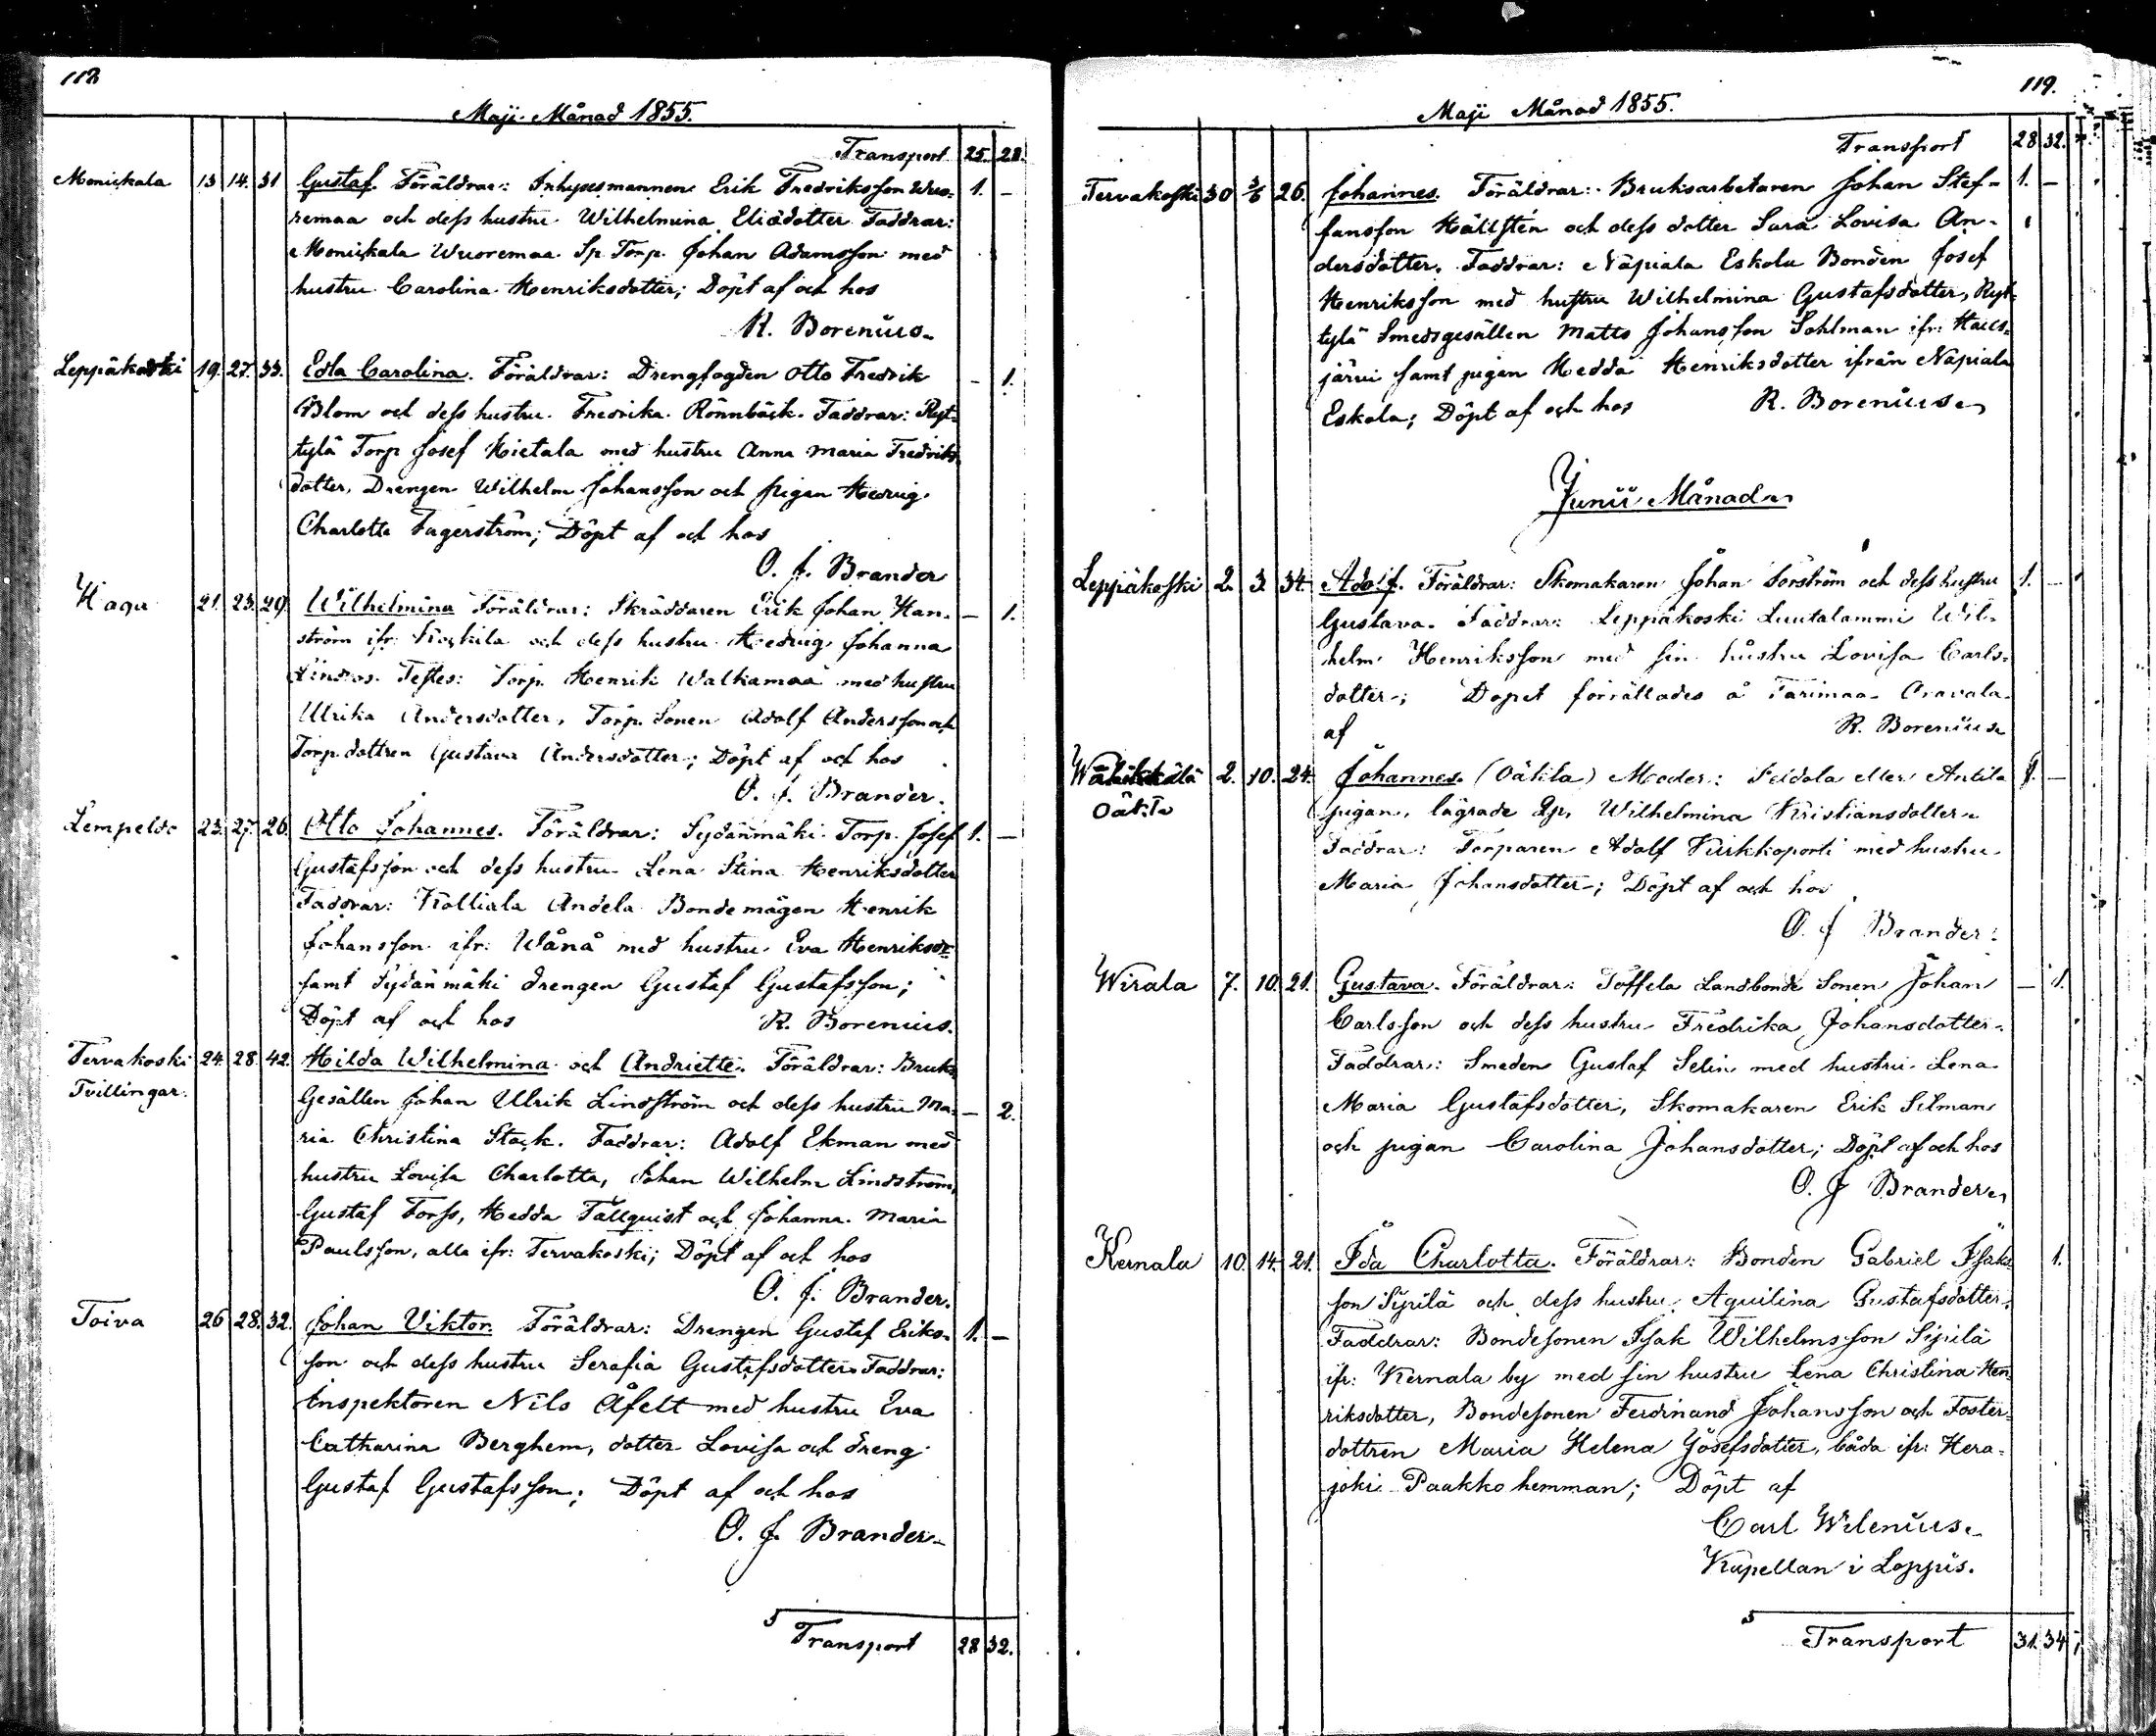 118
Maji Månad 1855.
Transport 25. 28.
Monikkala 13 14. 31 Gustaf. Föräldrar: Inhysesmannen Erik Fredriksson Wuo- 1. –
remaa och dess hustru Wilhelmina Eliædotter Faddrar:
Monikkala Wuoremaa Sp. Torp. Johan Adamsson med
hustru Carolina Henriksdotter; Döpt af och hos
R. Borenius.
Leppäkoski 19. 27. 33. Edla Carolina. Föräldrar: Drengfogden Otto Fredrik – 1.
Blom och dess hustru Fredrika Rönnbäck. Faddrar: Ryt-
tylä Torp Josef Hietala med hustru Anna Maria Fredriks
dotter, Drengen Wilhelm Johansson och pigan Hedvig
Charlotta Fagerström; Döpt af och hos
O. J. Brander
Haga 21. 23. 29. Wilhelmina Föräldrar: Skräddaren Erik Johan Han- – 1.
ström ifr. och dess hustru Hedvig Johanna
Lindros. Testes: Torp. Henrik Walkamaa med hustru
Ulrika Andersdotter, Torp. Sonen Adolf Andersson och
Torp. dottren Gustava Andersdotter; Döpt af och hos
O. J. Brander.
23. 27. 26. Otto Johannes. Föräldrar: Sydänmäki Torp. Josef 1. –
Gustafsson och dess hustru Lena Stina Henriksdotter
Faddrar: Andela Bondemågen Henrik
Johansson ifr: Wånå med hustru Eva Henriksdr
samt Sydänmäki drengen Gustaf Gustafsson;
Döpt af och hos R. Borenius.
Tervakoski 24. 28. 42. Hilda Wilhelmina och Andriette. Föräldrar: Bruks
Tvillingar. Gesällen Johan Ulrik Lindström och dess hustru Ma- – 2.
ria Christina Stack. Faddrar: Adolf Ekman med
hustru Lovisa Charlotta, Johan Wilhelm Lindström,
Gustaf Forss, Hedda Tallquist och Johanna Maria
Paulsson, alla ifr: Tervakoski; Döpt af och hos
O. J. Brander.
Toiva 26 28. 32. Johan Viktor. Föräldrar: Drengen Gustaf Eriks- 1. –
son och dess hustru Serafia Gustafsdotter Faddrar:
Inspektoren Nils Åfelt med hustru Eva
Catharina Berghem, dotter Lovisa och dreng
Gustaf Gustafsson; Döpt af och hos
O. J. Brander.
Transport 28 32.
119.
Maji Månad 1855.
Transport 28 32.
Tervakoski 30 3/6 26. Johannes. Föräldrar: Bruksarbetaren Johan Stef- 1. –
fansson Hällsten och dess dotter Sara Lovisa An-
dersdotter. Faddrar: Näpiala Eskola Bonden Josef
Henriksson med hustru Wilhelmina Gustafsdotter, Ryt-
tylä Smedsgesällen Matts Johansson Sohlman ifr. Haus-
järvi samt pigan Hedda Henriksdotter ifrån Näpiala
Eskola; Döpt af och hos R. Borenius
Junii Månad
Leppäkoski 2. 3. 34. Adolf. Föräldrar: Skomakaren Johan Forström och dess hustru 1. –
Gustava. Faddrar: Leppäkoski Luutalammi Wil-
helm Henriksson med sin hustru Lovisa Carls-
dotter; Dopet förrättades å Tarimaa Oravala
af R. Borenius
2. 10. 24. Johannes (Oäkta) Moder: eller Antila 1. –
Oäkta pigan, lägrade Qp. Wilhelmina Kristiansdotter
Faddrar: Torparen Adolf Kirkkoporti med hustru
Maria Johansdotter; Döpt af och hos
O. J Brander.
Wirala 7. 10. 21. Gustava. Föräldrar: Töffela Landbonde Sonen Johan – 1.
Carlsson och dess hustru Fredrika Johansdotter.
Faddrar: Smeden Gustaf Selin med hustru Lena
Maria Gustafsdotter, Skomakaren Erik Silman
och pigan Carolina Johansdotter; Döpt af och hos
O. J Brander
Kernala 10. 14. 21. Ida Charlotta. Föräldrar: Bonden Gabriel Isaks 1.
son Sipilä och dess hustru Aquilina Gustafsdotter.
Faddrar: Bondesonen Isak Wilhelmsson Sipilä
ifr: Kernala by med sin hustru Lena Christina Hen
riksdotter, Bondesonen Ferdinand Johansson och Foster-
dottren Maria Helena Josefsdotter, båda ifr: Hera-
joki Paakko hemman; Döpt af
Carl Welenius.
Kapellan i Loppis.
Transport 31. 34